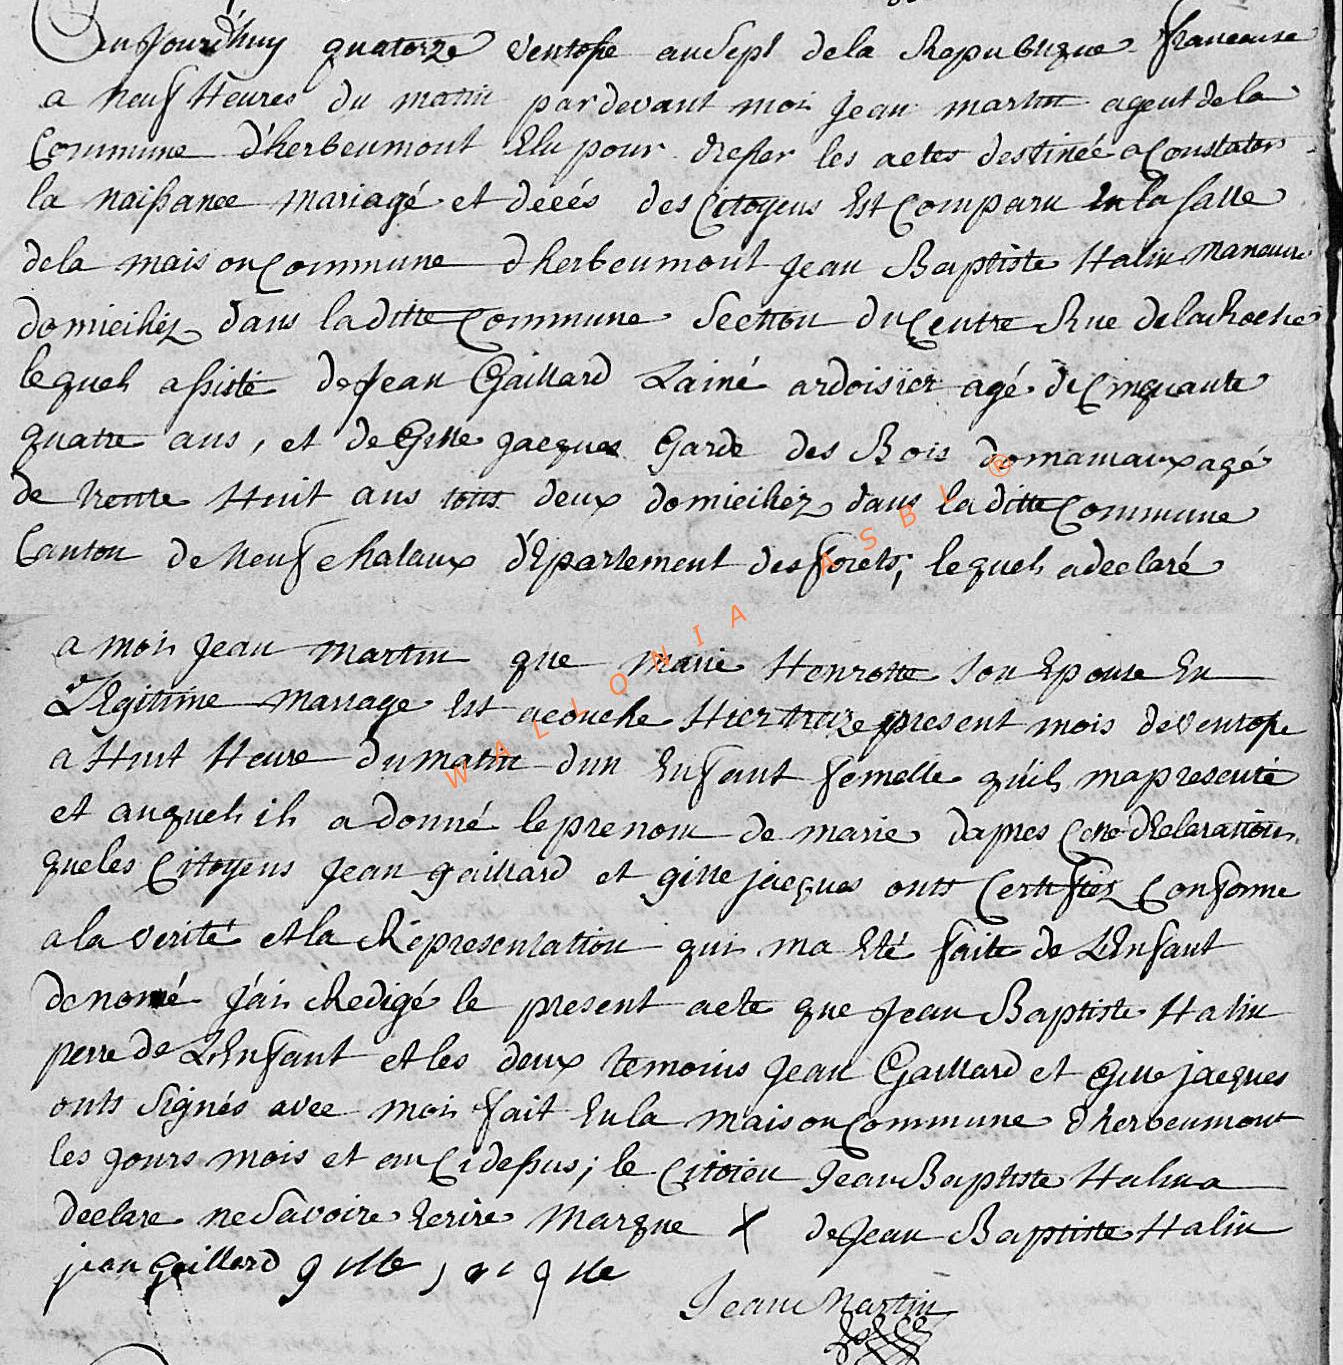 Aujourd'huy quatorze Ventosse an Sept de la Republique francaise
a neuf Heures du matin pardevant moi Jean martin agent de la
Commune d'herbeumont Elu pour dresser les actes destinée a Constater
la naissance mariagé et décés des Citoyens Est Comparu En la salle
de la maison Commune d'herbeumont Jean Baptiste Halin maneuvre
domiciliéz dans la ditte Commune Section du Centre Rue de la Roche
lequel assisté de Jean Gaillard Lainé ardoisier agé de Cinquante
quatre ans, et de Gille jacques Garde des Bois domaniaux agé
de trente Huit ans tous deux domiciliéz dans la ditte Commune
Canton de Neufchataux département des forets, lequel a declaré
a moi Jean martin que Marie Henrotte Son Epouse En
Légitime mariage Est acouché Hier treize present mois de Ventosse
a Huit Heure du matin d'un Enfant femelle qu'il ma presenté
et auquel il a donné le prenom de marie dapres Cette déclaration
que les Citoyens Jean gaillard et gille jacques onts Certifiez Conforme
a la verité et la Représentation qui ma Eté faite de L'Enfant
denomé j'ai Redigé le present acte que Jean Baptiste Halin
perre de L'Enfant et les deux temoins Jean Gaillard et Gille jacques
onts Signés avec moi fait En la maison Commune d'herbeumont
les jours mois et an Cidessus; le Citoien Jean Baptiste Halin a
declare ne Savoire Ecrire Marque X de Jean Baptiste Halin
jean gaillard gille
Jean Martin
WALLONIA ASBL ©